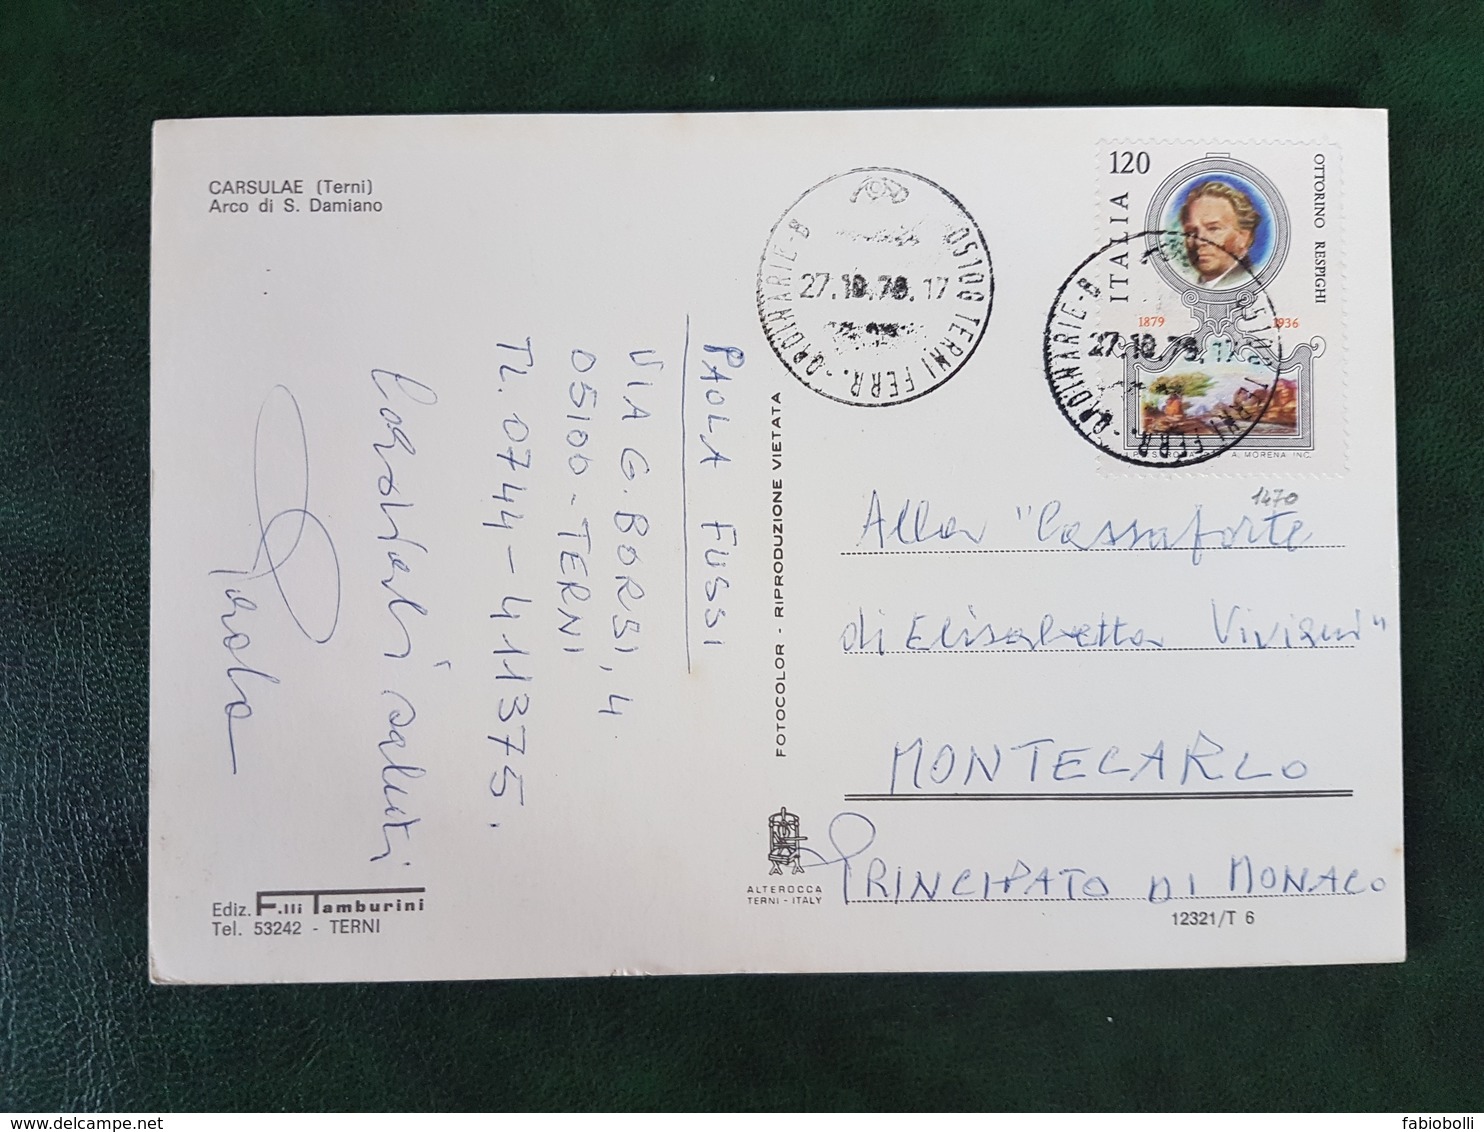 CARSULAE (Terni)
Arco di S. Damiano
Cordiali saluti
Paola
PAOLA FUSSI
VIA G. BORSI, 4
05100 - TERNI
TL. 0744 - 411375.
Ediz. F.lli Tamburini
Tel. 53242 - TERNI
FOTOCOLOR - RIPRODUZIONE VIETATA
ALTEROCCA
TERNI - ITALY
05100 TERNI FERR. - ORDINARIE - B
27.10.78.17
120
ITALIA
OTTORINO RESPIGHI
1879 1936
A. MORENA INC.
05100 TERNI FERR. - ORDINARIE - B
27.10.78.17
1470
Alla "Cassaforte
di Elisabetta Viviani"
MONTECARLO
PRINCIPATO DI MONACO
12321/T 6
fabiobolli